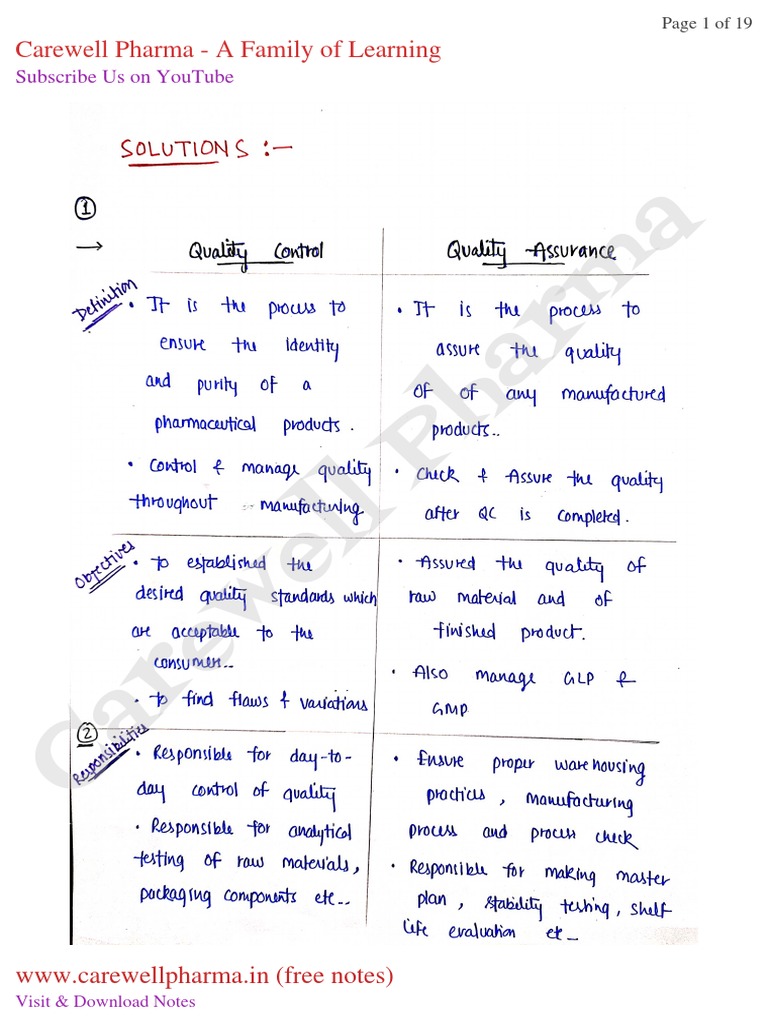 Page 1 of 19
Carewell Pharma - A Family of Learning
Subscribe Us on YouTube
SOLUTIONS :-
①
→ Quality Control
Definition
• It is the process to
ensure the identity
and purity of a
pharmaceutical products.
• Control & manage quality
throughout manufacturing
Quality Assurance
• It is the process to
assure the quality
of of any manufactured
products..
• Check & Assure the quality
after QC is completed.
Objectives
• To established the
desired quality standards which
are acceptable to the
consumer..
• To find flaws & variations
• Assured the quality of
raw material and of
finished product.
• Also manage GLP &
GMP
②
Responsibilities
• Responsible for day-to-
day control of quality
• Responsible for analytical
testing of raw materials,
packaging components etc--
• Ensure proper warehousing
practices, manufacturing
process and process check
• Responsible for making master
plan, stability testing, shelf
life evaluation etc-
Carewell Pharma
www.carewellpharma.in (free notes)
Visit & Download Notes